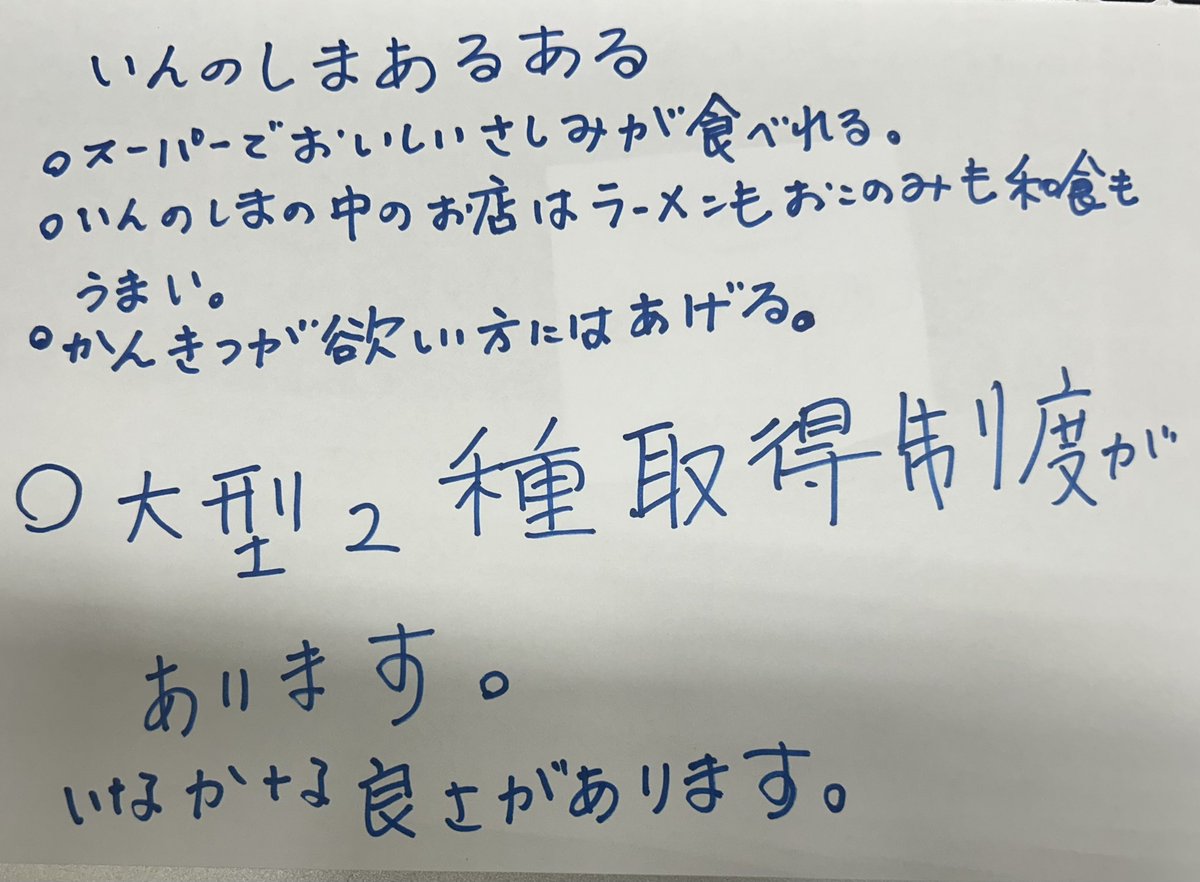 いんのしまあるある
○スーパーでおいしいさしみが食べれる。
○いんのしまの中のお店はラーメンもおこのみも和食も
うまい。
○かんきつが欲しい方にはあげる。
○大型2種取得制度が
あります。
いなかなる良さがあります。